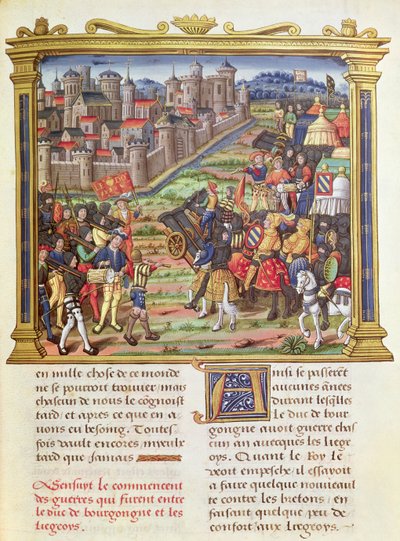 en mille chose de ce monde
ne se pourroit trouuer, mais
chascun de nous le cognoist
tard, et apres ce que en a
uons eu besoing. Toutes
fois vault encores, mieulx
tard que Jamais
Sensuyt le commencement
des guerres qui furent entre
le duc de bourgongne et les
liegeoys.
Ainsi se passerent
aucunes années
durant lesqlles
le Duc de bour
gongne auoit guerre chas
cun an auecques les liege
oys. Quant le Roy le
veoit empesche, il essayoit
a faire quelque nouueaul
te contre les bretons, en
faisant quelque peu de
confort aux liegeoys.